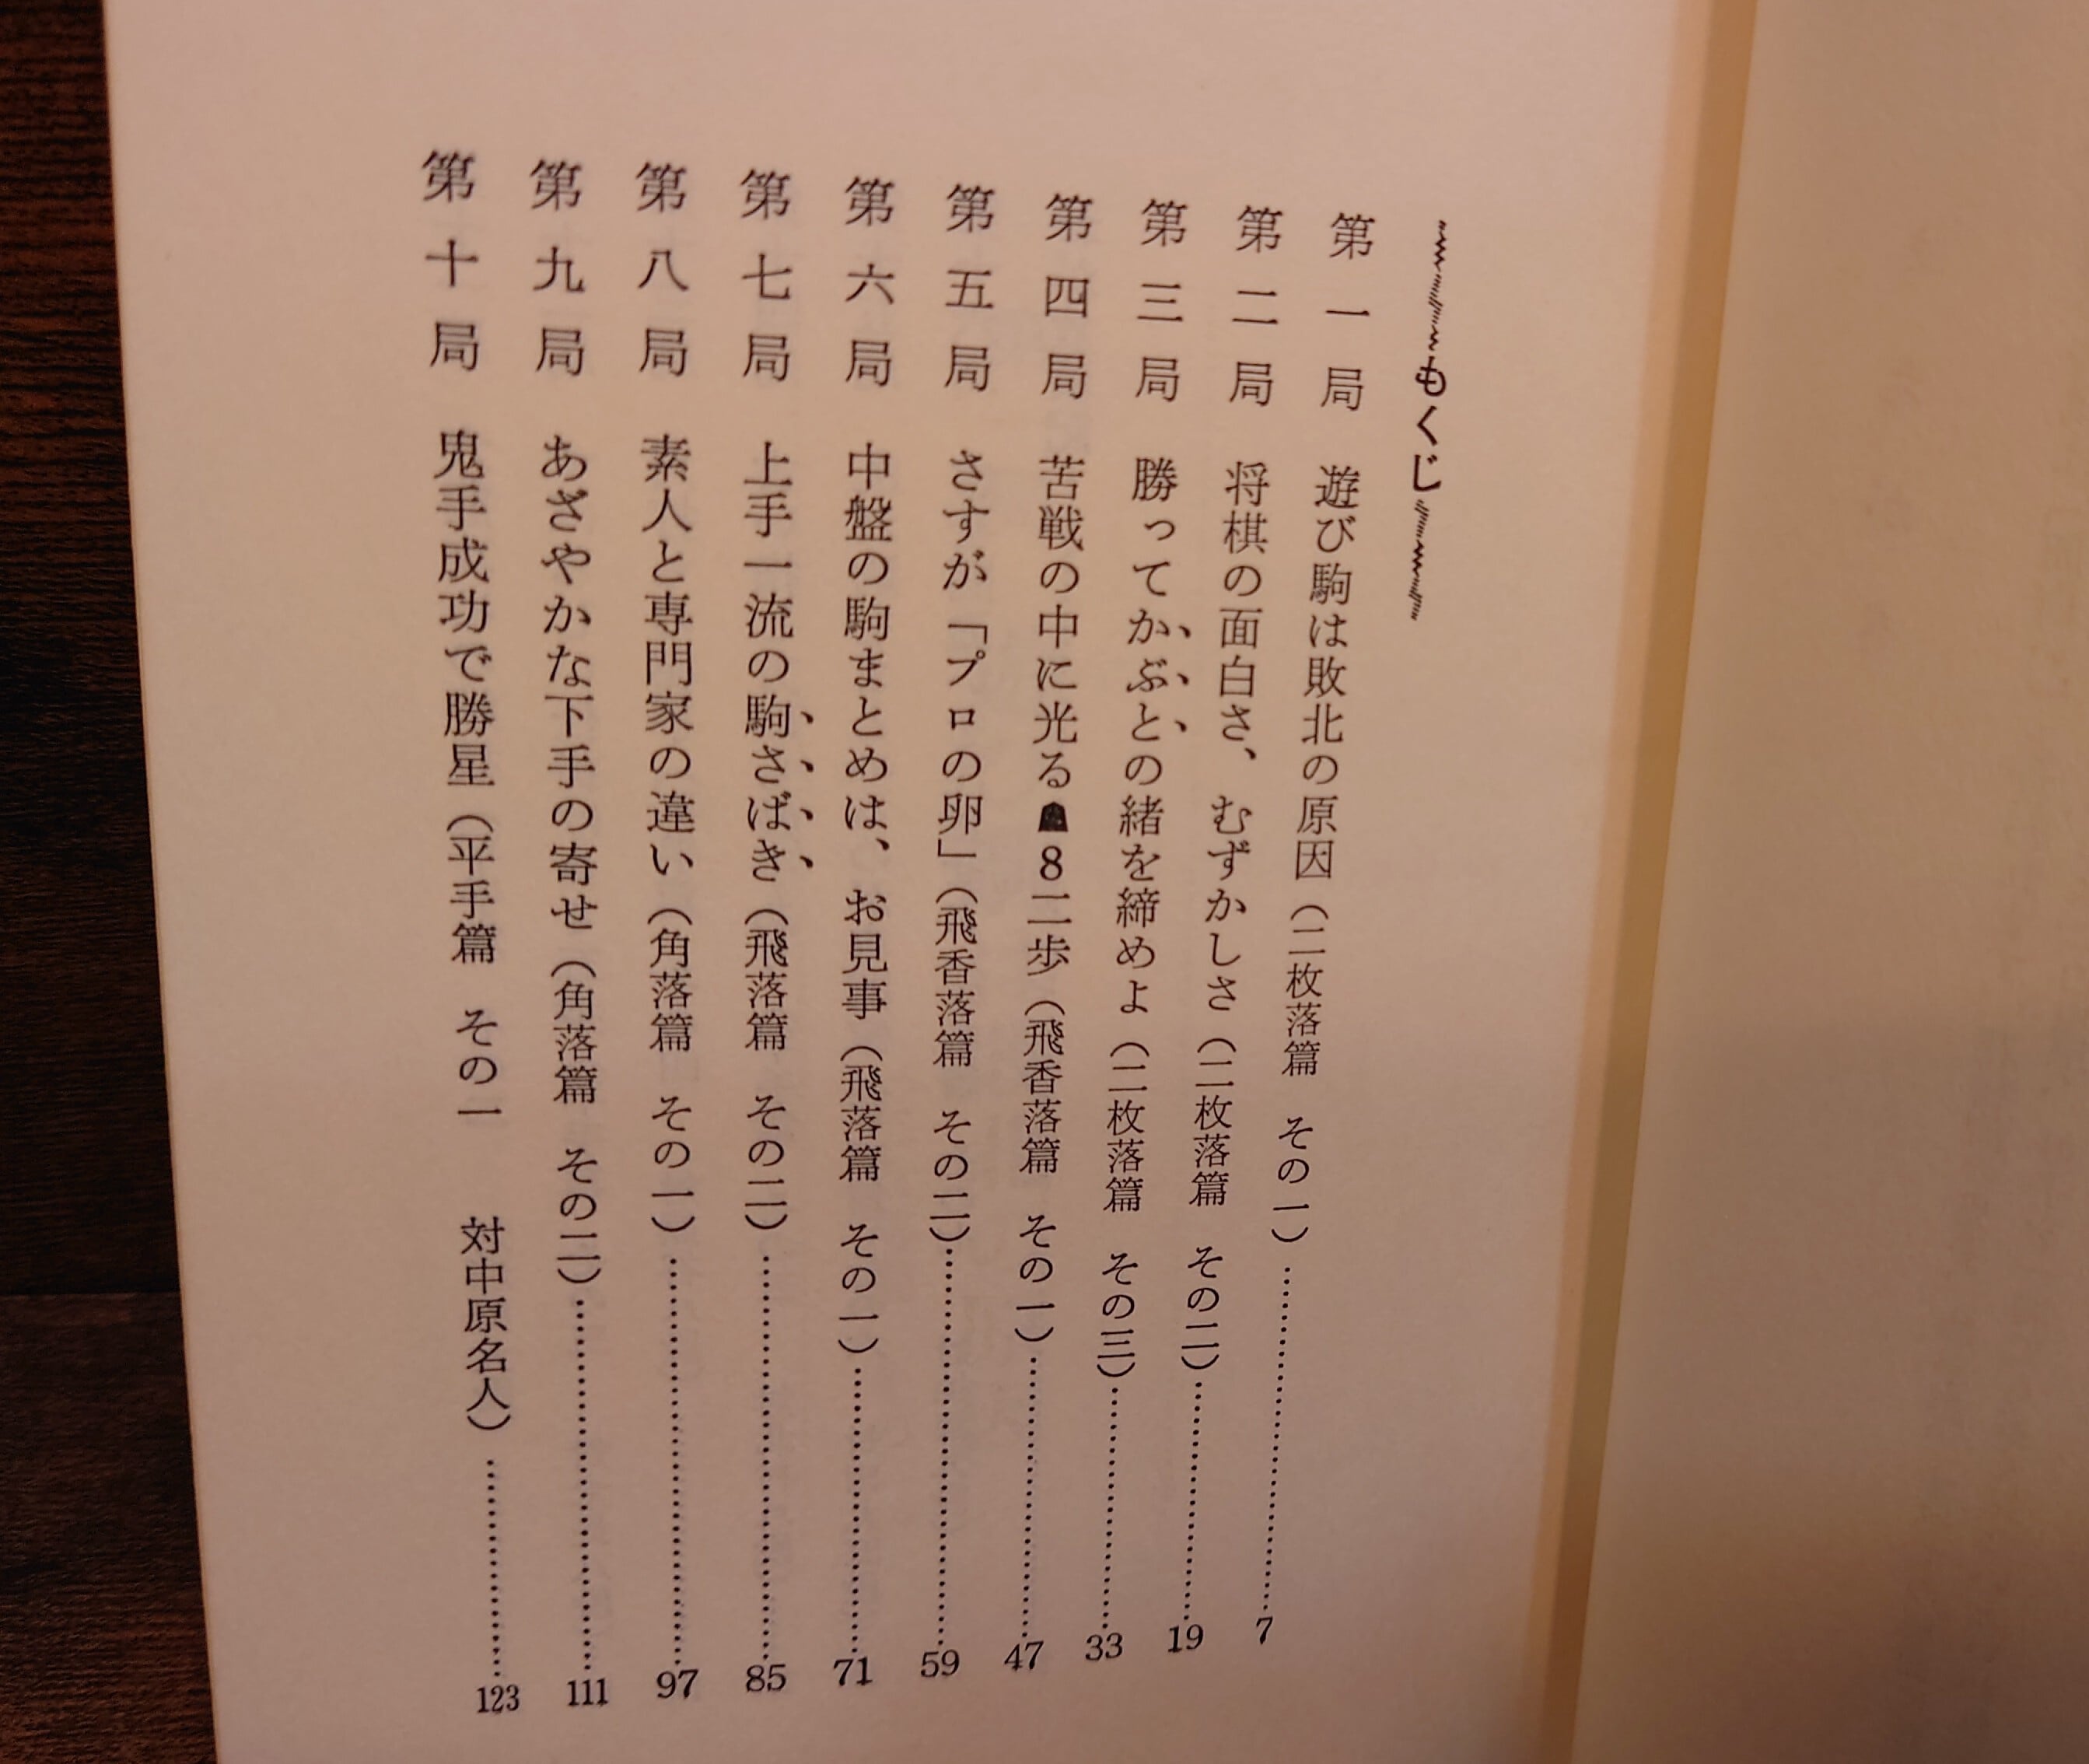 もくじ
第一局 遊び駒は敗北の原因(二枚落篇 その一)…………7
第二局 将棋の面白さ、むずかしさ(二枚落篇 その二)…………19
第三局 勝ってかぶとの緒を締めよ(二枚落篇 その三)…………33
第四局 苦戦の中に光る☗8二歩(飛香落篇 その一)…………47
第五局 さすが「プロの卵」(飛香落篇 その二)…………59
第六局 中盤の駒まとめは、お見事(飛落篇 その一)…………71
第七局 上手一流の駒さばき(飛落篇 その二)…………85
第八局 素人と専門家の違い(角落篇 その一)…………97
第九局 あざやかな下手の寄せ(角落篇 その二)…………111
第十局 鬼手成功で勝星(平手篇 その一 対中原名人)…………123